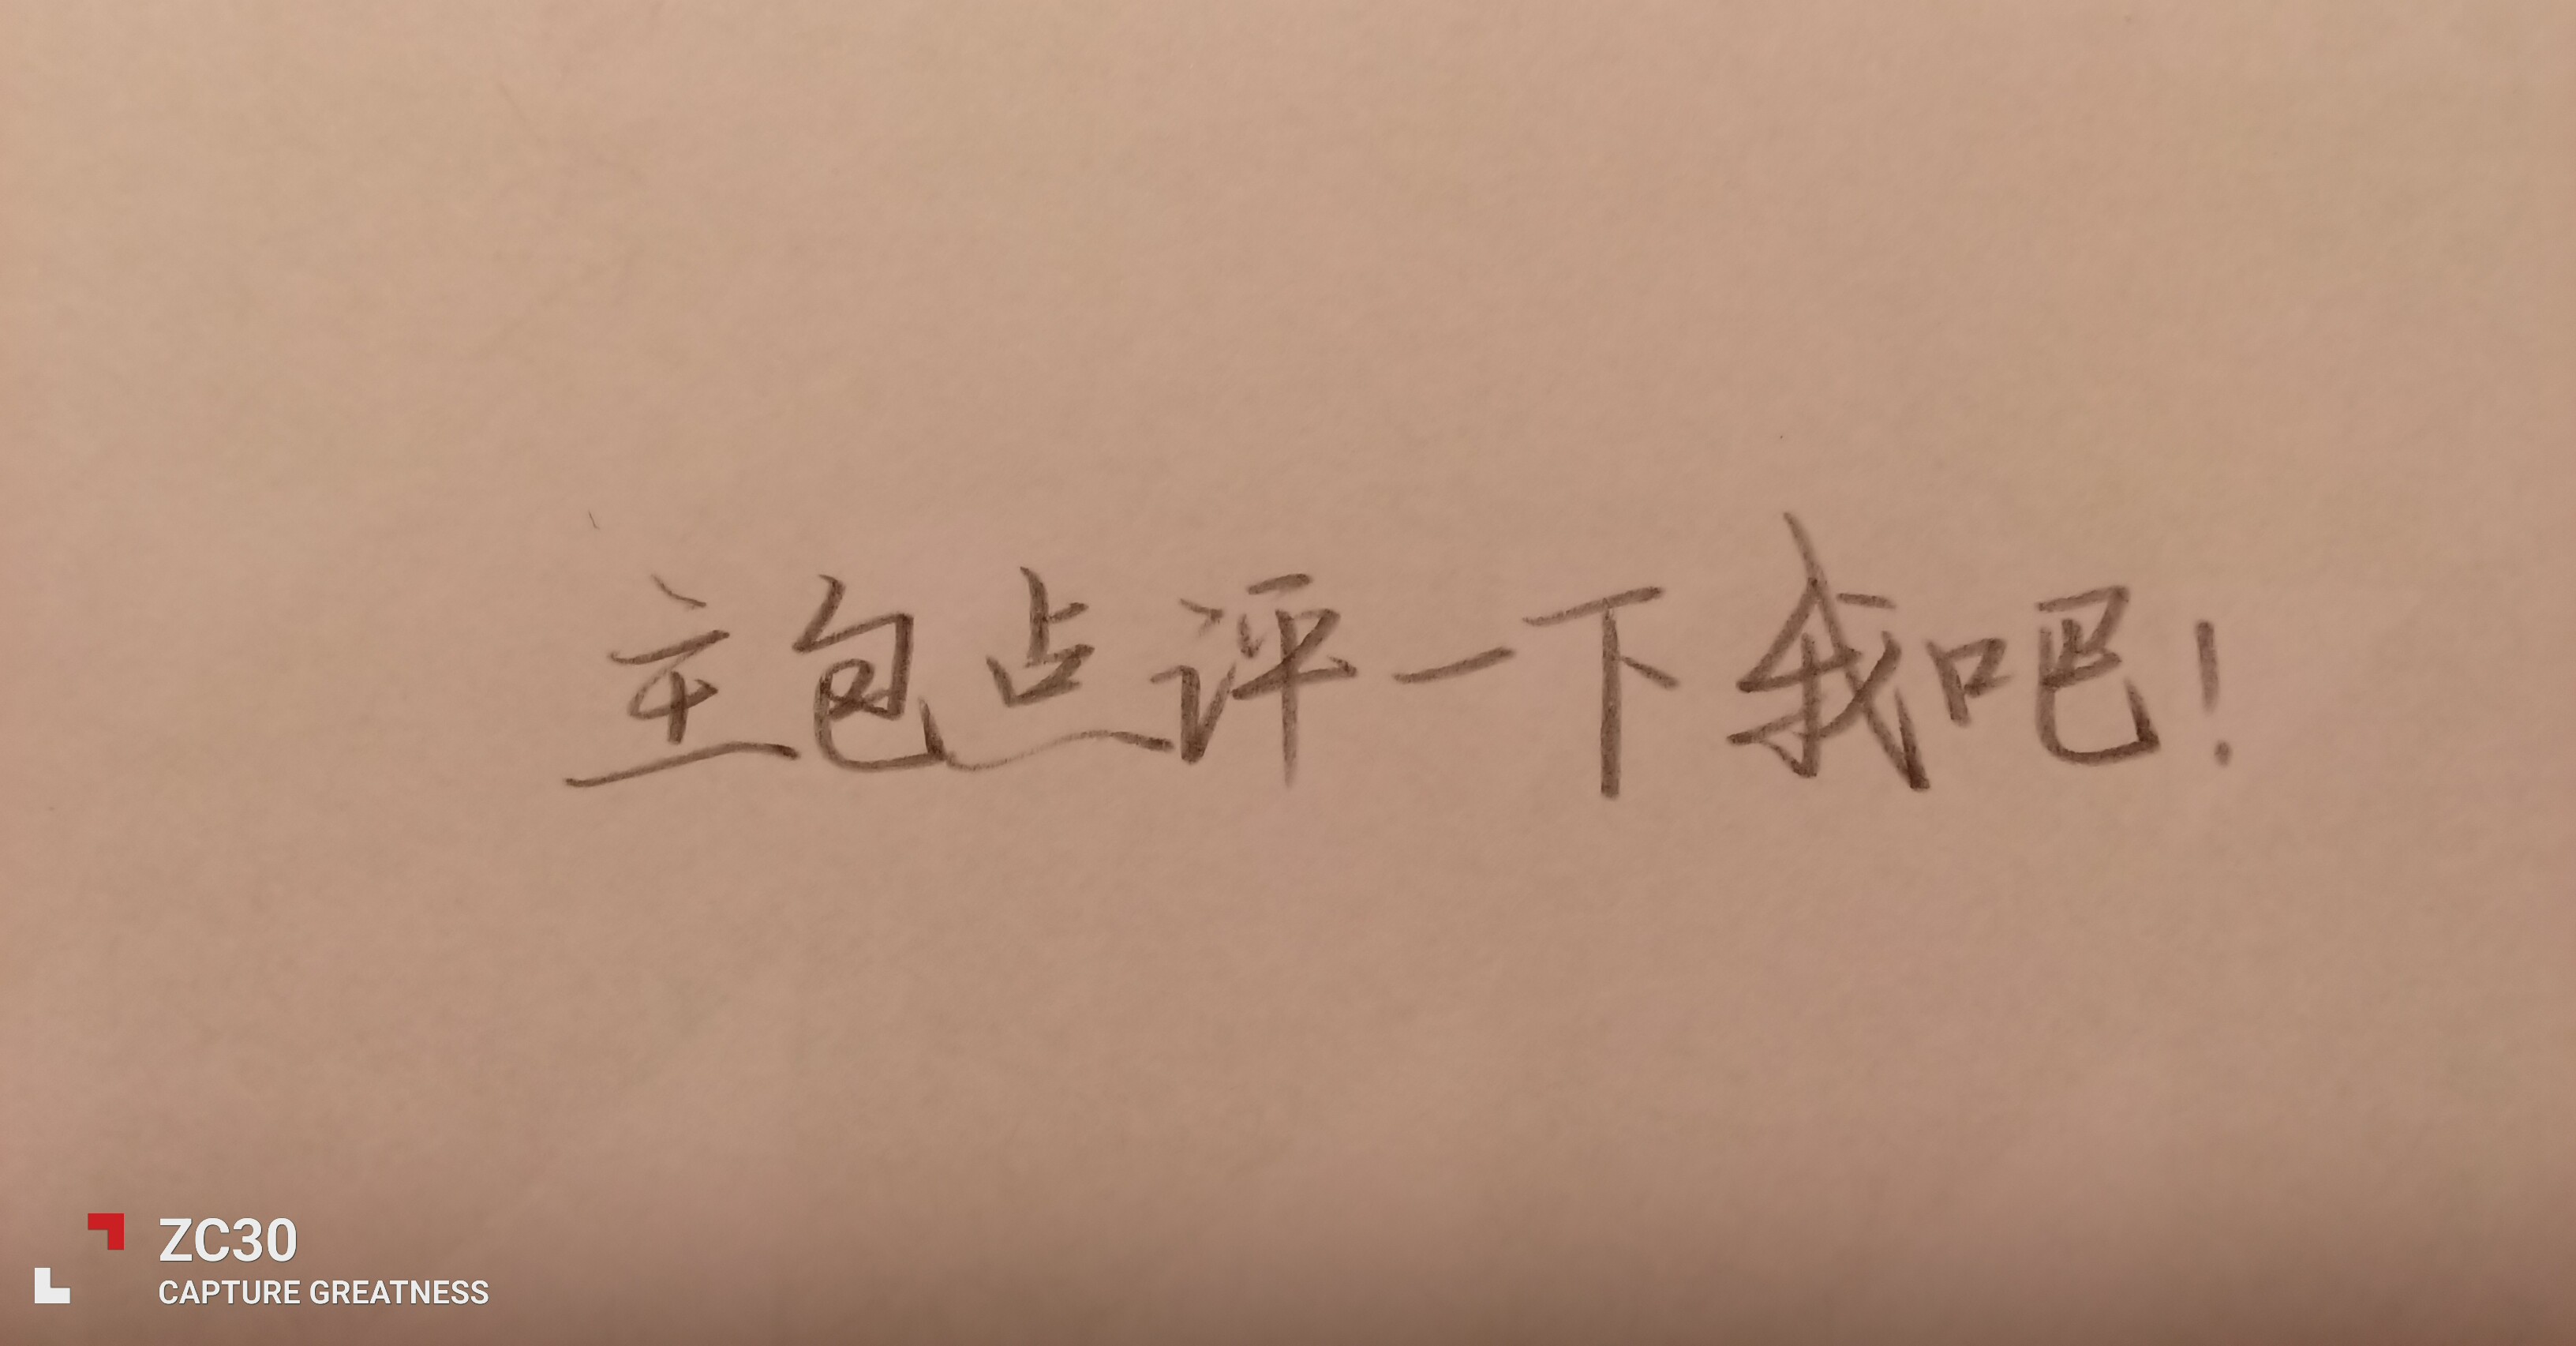 主包点评一下我吧！
ZC30
CAPTURE GREATNESS